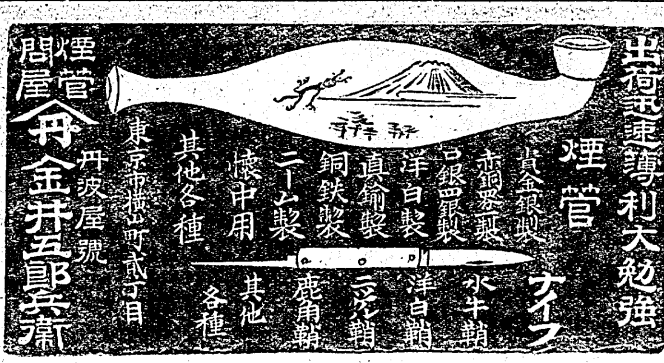 出荷迅速薄利大勉強
煙管
貴金銀製
洋白製
真鍮製
銅鉄製
ニーム製
懐中用
其他各種
ナイフ
水牛鞘
洋白鞘
ニッケル鞘
鹿角鞘
其他
各種
東京市横山町貳丁目
丹波屋號
煙管
問屋
丹
金井五郎兵衞